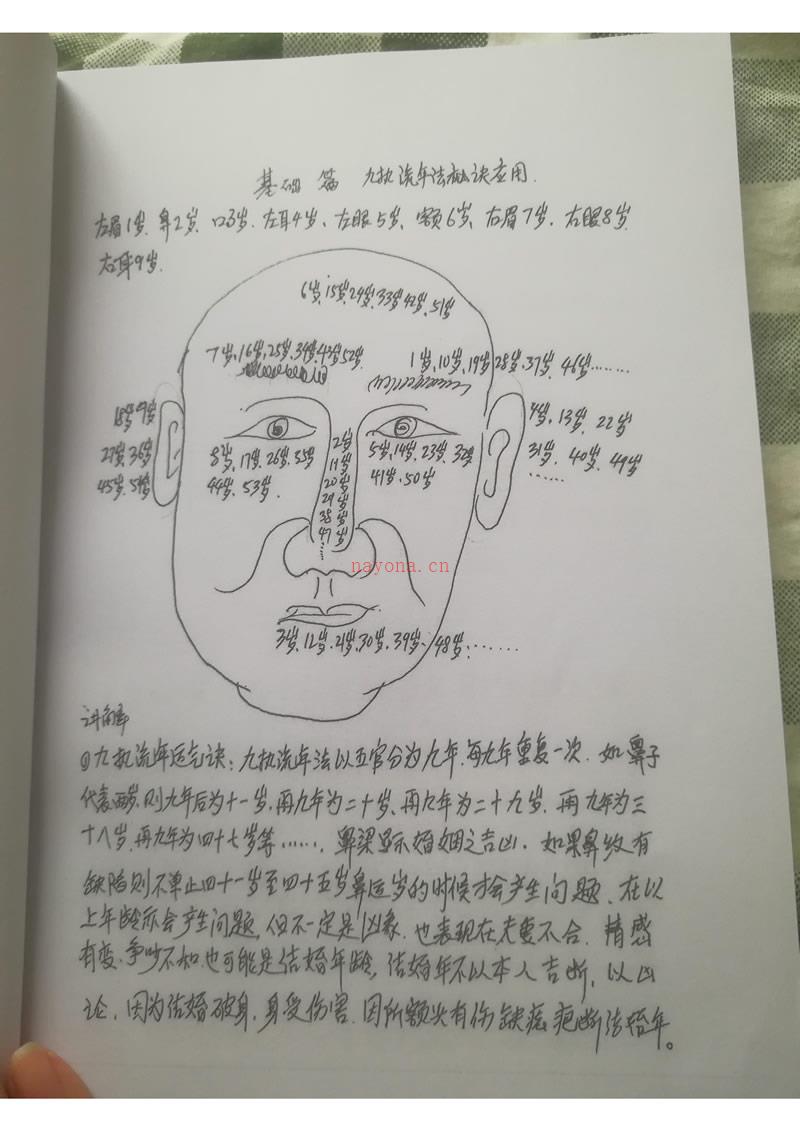 基础 篇 九执流年法秘诀应用.
左眉1岁. 鼻2岁. 口3岁. 左耳4岁、左眼5岁、额6岁、右眉7岁. 右眼8岁.
右耳9岁.
6岁,15岁,24岁,33岁42岁,51岁
7岁,16岁,25岁,34岁,43岁52岁.
1岁,10岁,19岁28岁,37岁, 46岁……
18岁9岁
27岁,36岁
45岁,54岁
4岁,13岁, 22岁
31岁, 40岁, 49岁
……
8岁,17岁,26岁,35岁
44岁、53岁.
2岁
11岁
20岁
29岁
38岁
47岁
……
5岁,14岁,23岁,32岁
41岁、50岁.
nayona.cn
3岁,12岁,21岁,30岁,39岁、48岁:……
讲解
①九执流年运气诀:九执流年法以五官分为九年,每九年重复一次. 如鼻子
代表两岁,则九年后为十一岁,再九年为二十岁、再九年为二十九岁. 再九年为三
十八岁.再九年为四十七岁等……. 鼻梁显示婚姻之吉凶. 如果鼻纹有
缺陷则不单止四十一岁至四十五岁鼻运岁的时候才会产生问题、在以
上年龄亦会产生问题,但不一定是凶象. 也表现在夫妻不合. 情感
有变、争吵不和.也可能是结婚年龄, 结婚年不以本人吉断,以凶
论, 因为结婚破身,身受伤害. 因所额头有伤缺痣疤断结婚年。